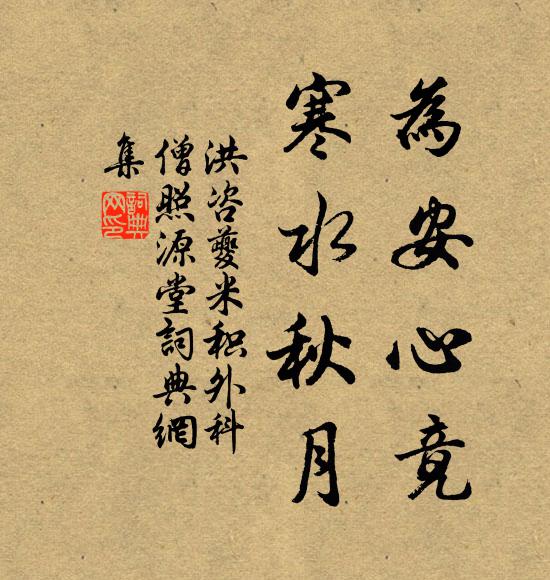 為安心竟
寒水秋月
洪咨夔米积外科
僧照源堂詞典網
集
詞典
网印